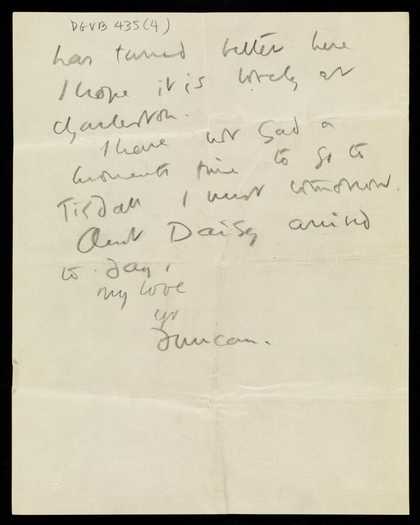 DGVB 435(4)
has turned better here
I hope it is lovely at
Charleston.
I have not had a
moments time to go to
Tisdall I must tomorrow.
Aunt Daisy arrived
to day,
my love
yr
Duncan.